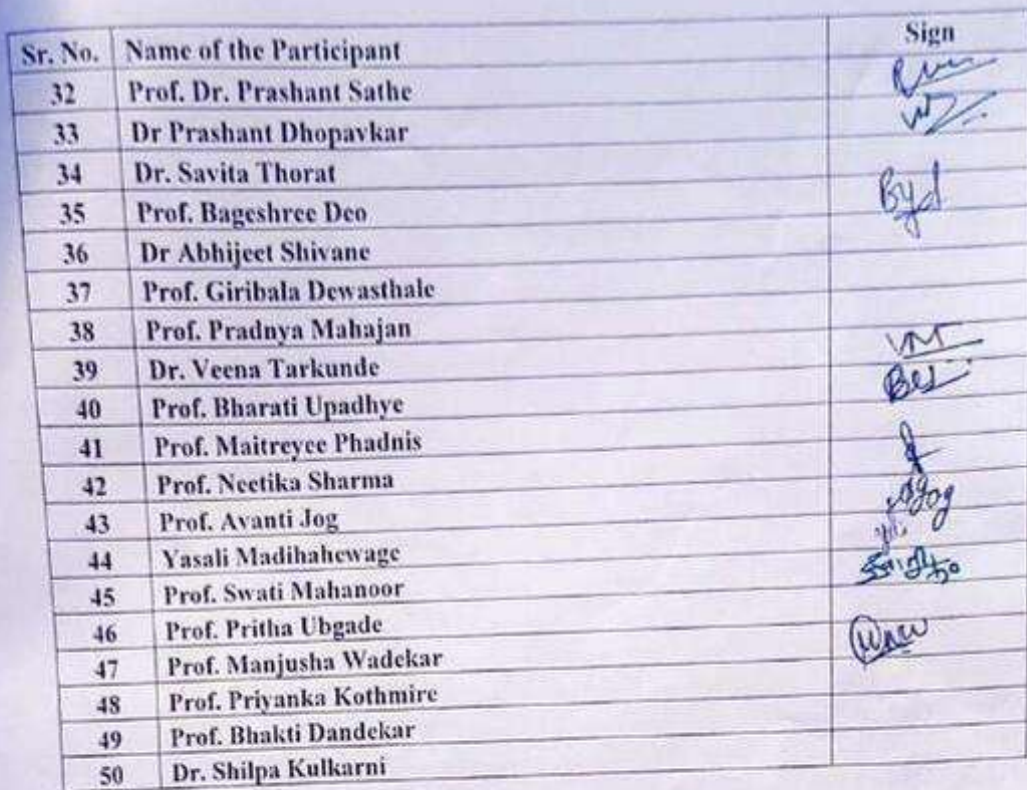 Sr. No. Name of the Participant Sign
32 Prof. Dr. Prashant Sathe
33 Dr Prashant Dhopavkar
34 Dr. Savita Thorat
35 Prof. Bageshree Deo
36 Dr Abhijeet Shivane
37 Prof. Giribala Dewasthale
38 Prof. Pradnya Mahajan
39 Dr. Veena Tarkunde
40 Prof. Bharati Upadhye
41 Prof. Maitreyee Phadnis
42 Prof. Neetika Sharma
43 Prof. Avanti Jog
44 Yasali Madihahewage
45 Prof. Swati Mahanoor
46 Prof. Pritha Ubgade
47 Prof. Manjusha Wadekar
48 Prof. Priyanka Kothmire
49 Prof. Bhakti Dandekar
50 Dr. Shilpa Kulkarni